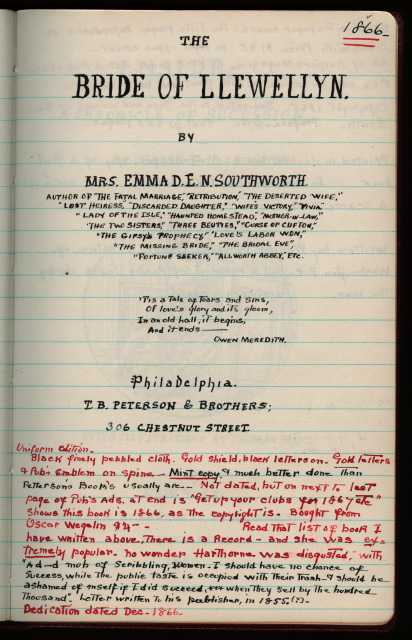 1866-
THE
BRIDE OF LLEWELLYN.
BY
MRS. EMMA D.E.N. SOUTHWORTH.
AUTHOR OF "THE FATAL MARRIAGE," "RETRIBUTION," "THE DESERTED WIFE,"
"LOST HEIRESS," "DISCARDED DAUGHTER," "WIFE'S VICTORY," "VIVIA."
"LADY OF THE ISLE," "HAUNTED HOMESTEAD," "MOTHER-IN-LAW,"
"THE TWO SISTERS," "THREE BEUTIES," "CURSE OF CLIFTON,"
"THE GIPSYS PROPHECY," "LOVE'S LABOR WON,"
"THE MISSING BRIDE," "THE BRIDAL EVE",
"FORTUNE SEEKER," "ALLWORTH ABBEY," ETC.
'Tis a Tale of Tears and Sins,
Of love's glory and its gloom,
In an old hall, it begins,
And it ends ———
OWEN MEREDITH.
Philadelphia.
T.B. PETERSON & BROTHERS;
306 CHESTNUT STREET
Uniform edition.
Black finely pebbled cloth. Gold Shield, black letters on. Gold letters
& Pub's Emblem on Spine - Mint copy, & much better done than
Peterson's Book's usually are - Not dated, but on next to last
page of Pub's Ads. at end is "Get up your clubs for 1867 etc"
shows this book is 1866, as the copyright is. Bought from
Oscar Wegelin $ - Read that list of book I
have written above, There is a Record - and she was ex-
tremely popular - no wonder Harthorne was disgusted," with
"A d-d mob of Scribbling, Women - I should have no chance of
Success, while the public taste is occupied with their Trash - I should be
ashamed of myself if I did succeed, when they sell by the hundred
Thousand". Letter written to his publisher, in 1855.(?)-
Dedication dated Dec - 1866.